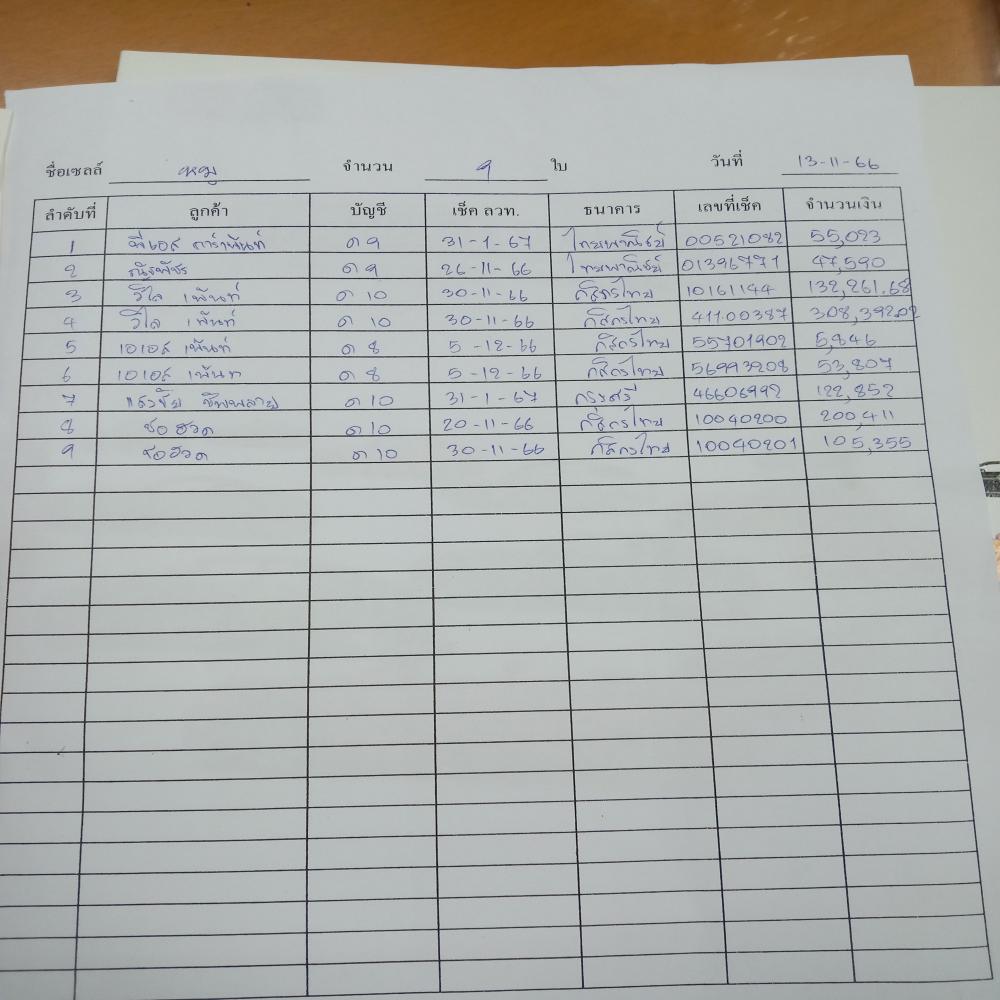 ชื่อเซลล์ หมู จำนวน 9 ใบ วันที่ 13-11-66
ลำดับที่ ลูกค้า บัญชี เช็ค ลวท. ธนาคาร เลขที่เช็ค จำนวนเงิน
1 พีเอส การ์เพ้นท์ ด 9 31-1-67 ไทยพาณิชย์ 00521082 55,023
2 ณัฐพัชร ด 9 26-11-66 ไทยพาณิชย์ 01396771 47,590
3 วิไล เพ้นท์ ด 10 30-11-66 กสิกรไทย 10161144 132,261.68
4 วิไล เพ้นท์ ด 10 30-11-66 กสิกรไทย 41100387 308,392.02
5 เอเอส เพ้นท์ ด 8 5-12-66 กสิกรไทย 55701902 5,846
6 เอเอส เพ้นท ด 8 5-12-66 กสิกรไทย 56993208 53,807
7 ด 10 31-1-67 กรุงศรี 46606992 122,852
8 ช่อฮวด ด 10 20-11-66 กสิกรไทย 10040200 200,411
9 ช่อฮวด ด 10 30-11-66 กสิกรไทย 10040201 105,355